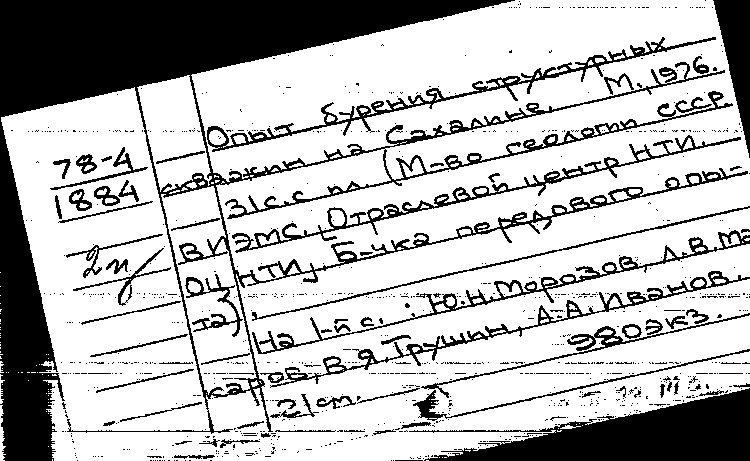 78-4
1884
2п
Опыт бурения структурных
скважин на Сахалине. М., 1976.
31 с. с ил. (М-во геологии СССР.
ВИЭМС. Отраслевой центр НТИ.
ОЦ НТИ]. Б-чка передового опы-
та).
На 1-й с. : Ю.Н. Морозов, Л.В. Ма
каров, В.Я. Трушин, А.А. Иванов.
21 см. 980 экз.